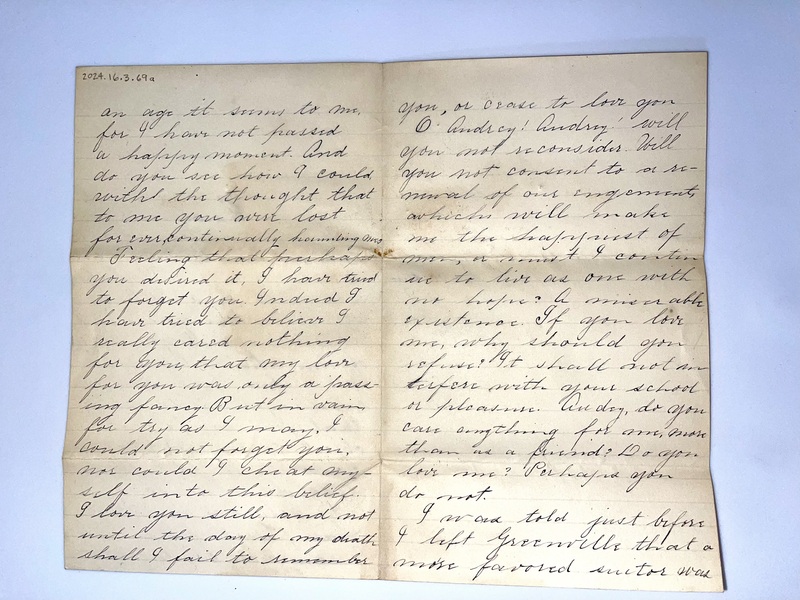 2024.16.3.69a
an age it seems to me,
for I have not passed
a happy moment. And
do you see how I could,
with the thought that
to me you were lost
for ever, continually haunting me.
Feeling that perhaps
you desired it, I have tried
to forget you. Indeed I
have tried to believe I
really cared nothing
for you, that my love
for you was only a pass-
ing fancy. But in vain,
for try as I may, I
could not forget you,
nor could I cheat my-
self into this belief.
I love you still, and not
until the day of my death
shall I fail to remember
you, or cease to love you
O! Audrey! Audrey! will
you not reconsider. Will
you not consent to a re-
newal of our engements
which will make
me the happyest of
men, or must I contin
ue to live as one with
no hope? A miserable
existence. If you love
me, why should you
refuse? It shall not in
terfere with your school
or pleasure. Audry, do you
care anything for me, more
than as a friend? Do you
love me? Perhaps you
do not.
I was told just before
I left Greenville that a
more favored suitor was